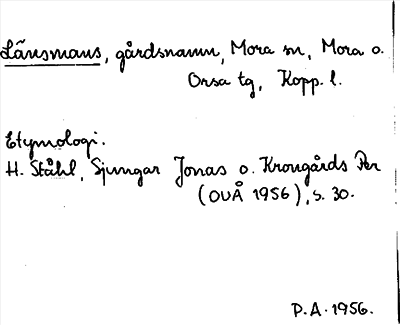 Länsmans, gårdsnamn, Mora sn, Mora o.
Orsa tg, Kopp. l.
Etymologi.
H. Ståhl, Sjungar Jonas o. Krongårds Per
(OUÅ 1956), s. 30.
P.A. 1956.